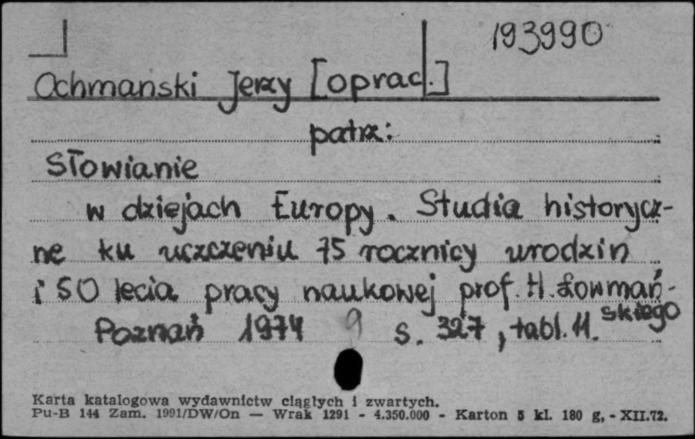 193990
Ochmański Jerzy [oprac.]
patrz:
Słowianie
w dziejach Europy. Studia historycz-
ne ku uczczeniu 75 rocznicy urodzin
i 50 lecia pracy naukowej prof. H. Łowmań-
skiego
Poznań 1974 9 s. 327, tabl. 11.
Karta katalogowa wydawnictw ciągłych i zwartych.
Pu-B 144 Zam. 1991/DW/On — Wrak 1291 - 4.350.000 - Karton 5 kl. 180 g, - XII.72.